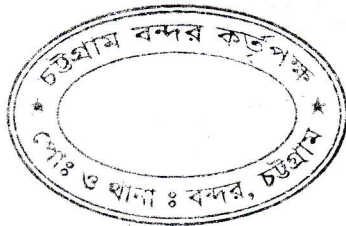 চট্টগ্রাম বন্দর কর্তৃপক্ষ
পোঃ ও থানা ঃ বন্দর, চট্টগ্রাম